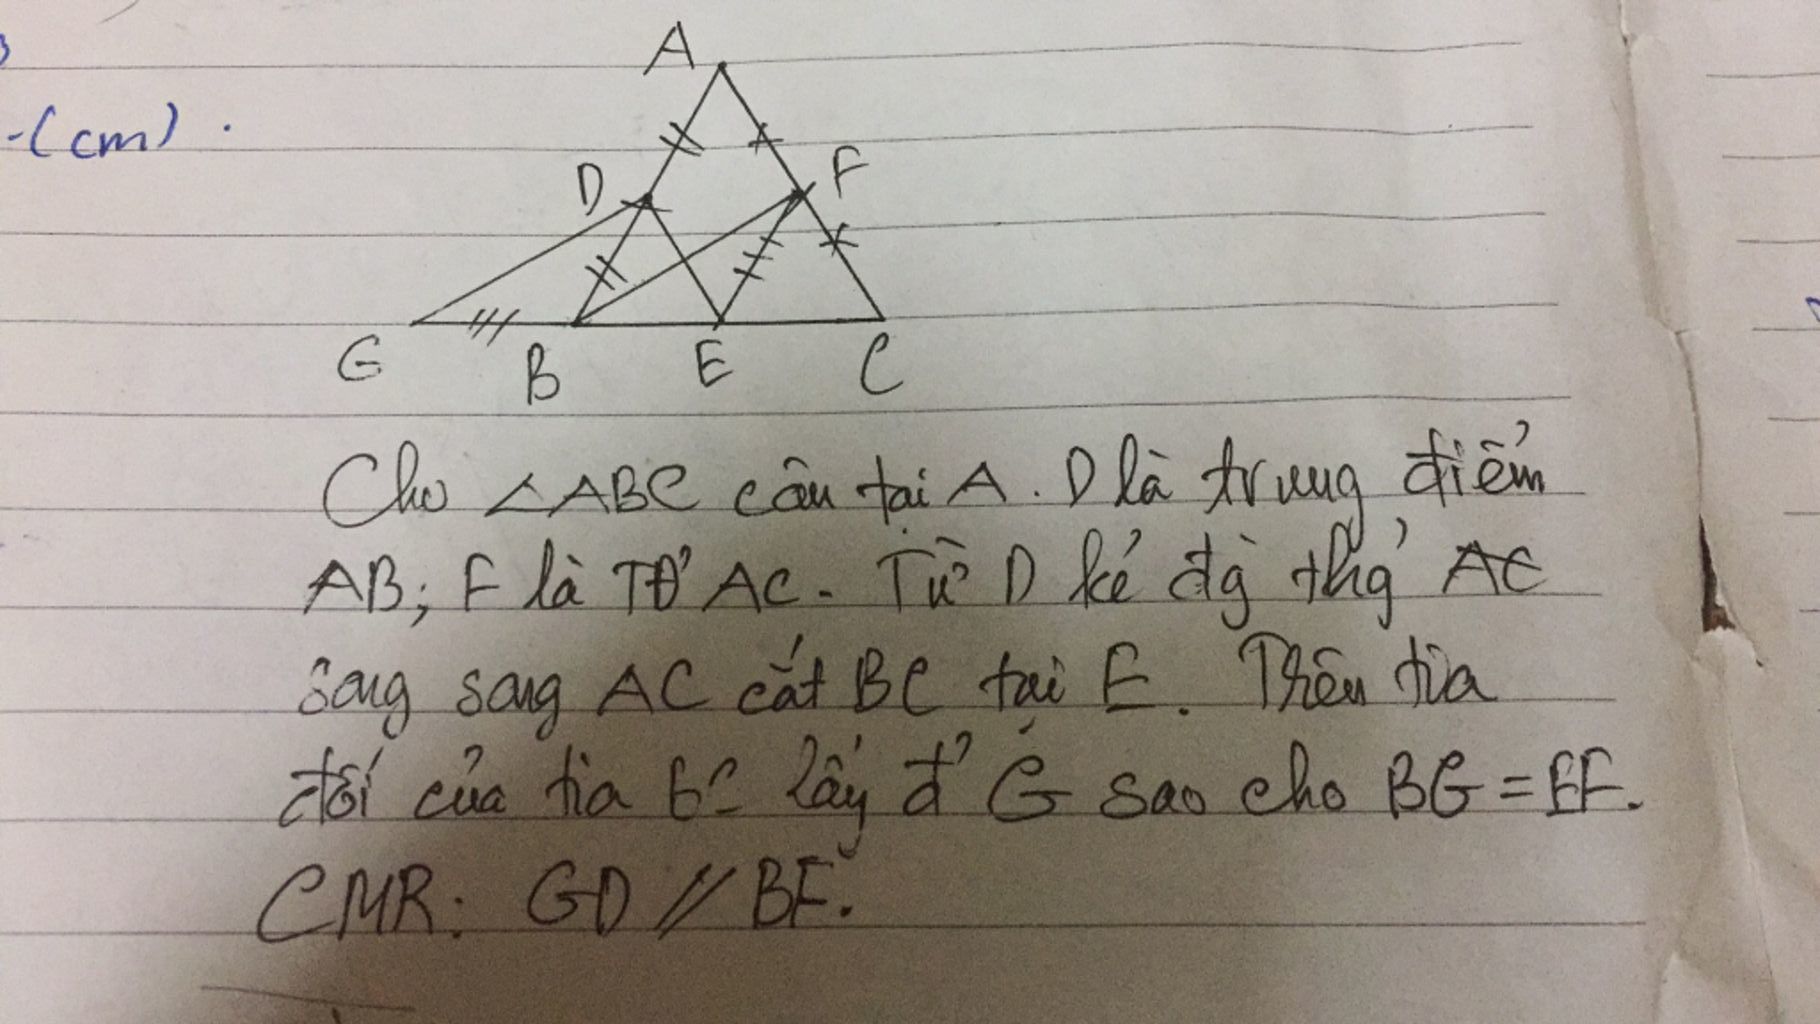 -(cm).
A
D
F
G
B
E
C
Cho ∠ABC cân tại A. D là trung điểm
AB; F là TĐ' AC. Từ D kẻ đg thg' AC
song song AC cắt BC tại E. Trên tia
đối của tia BC lấy đ' G sao cho BG = EF.
CMR: GD // BF.